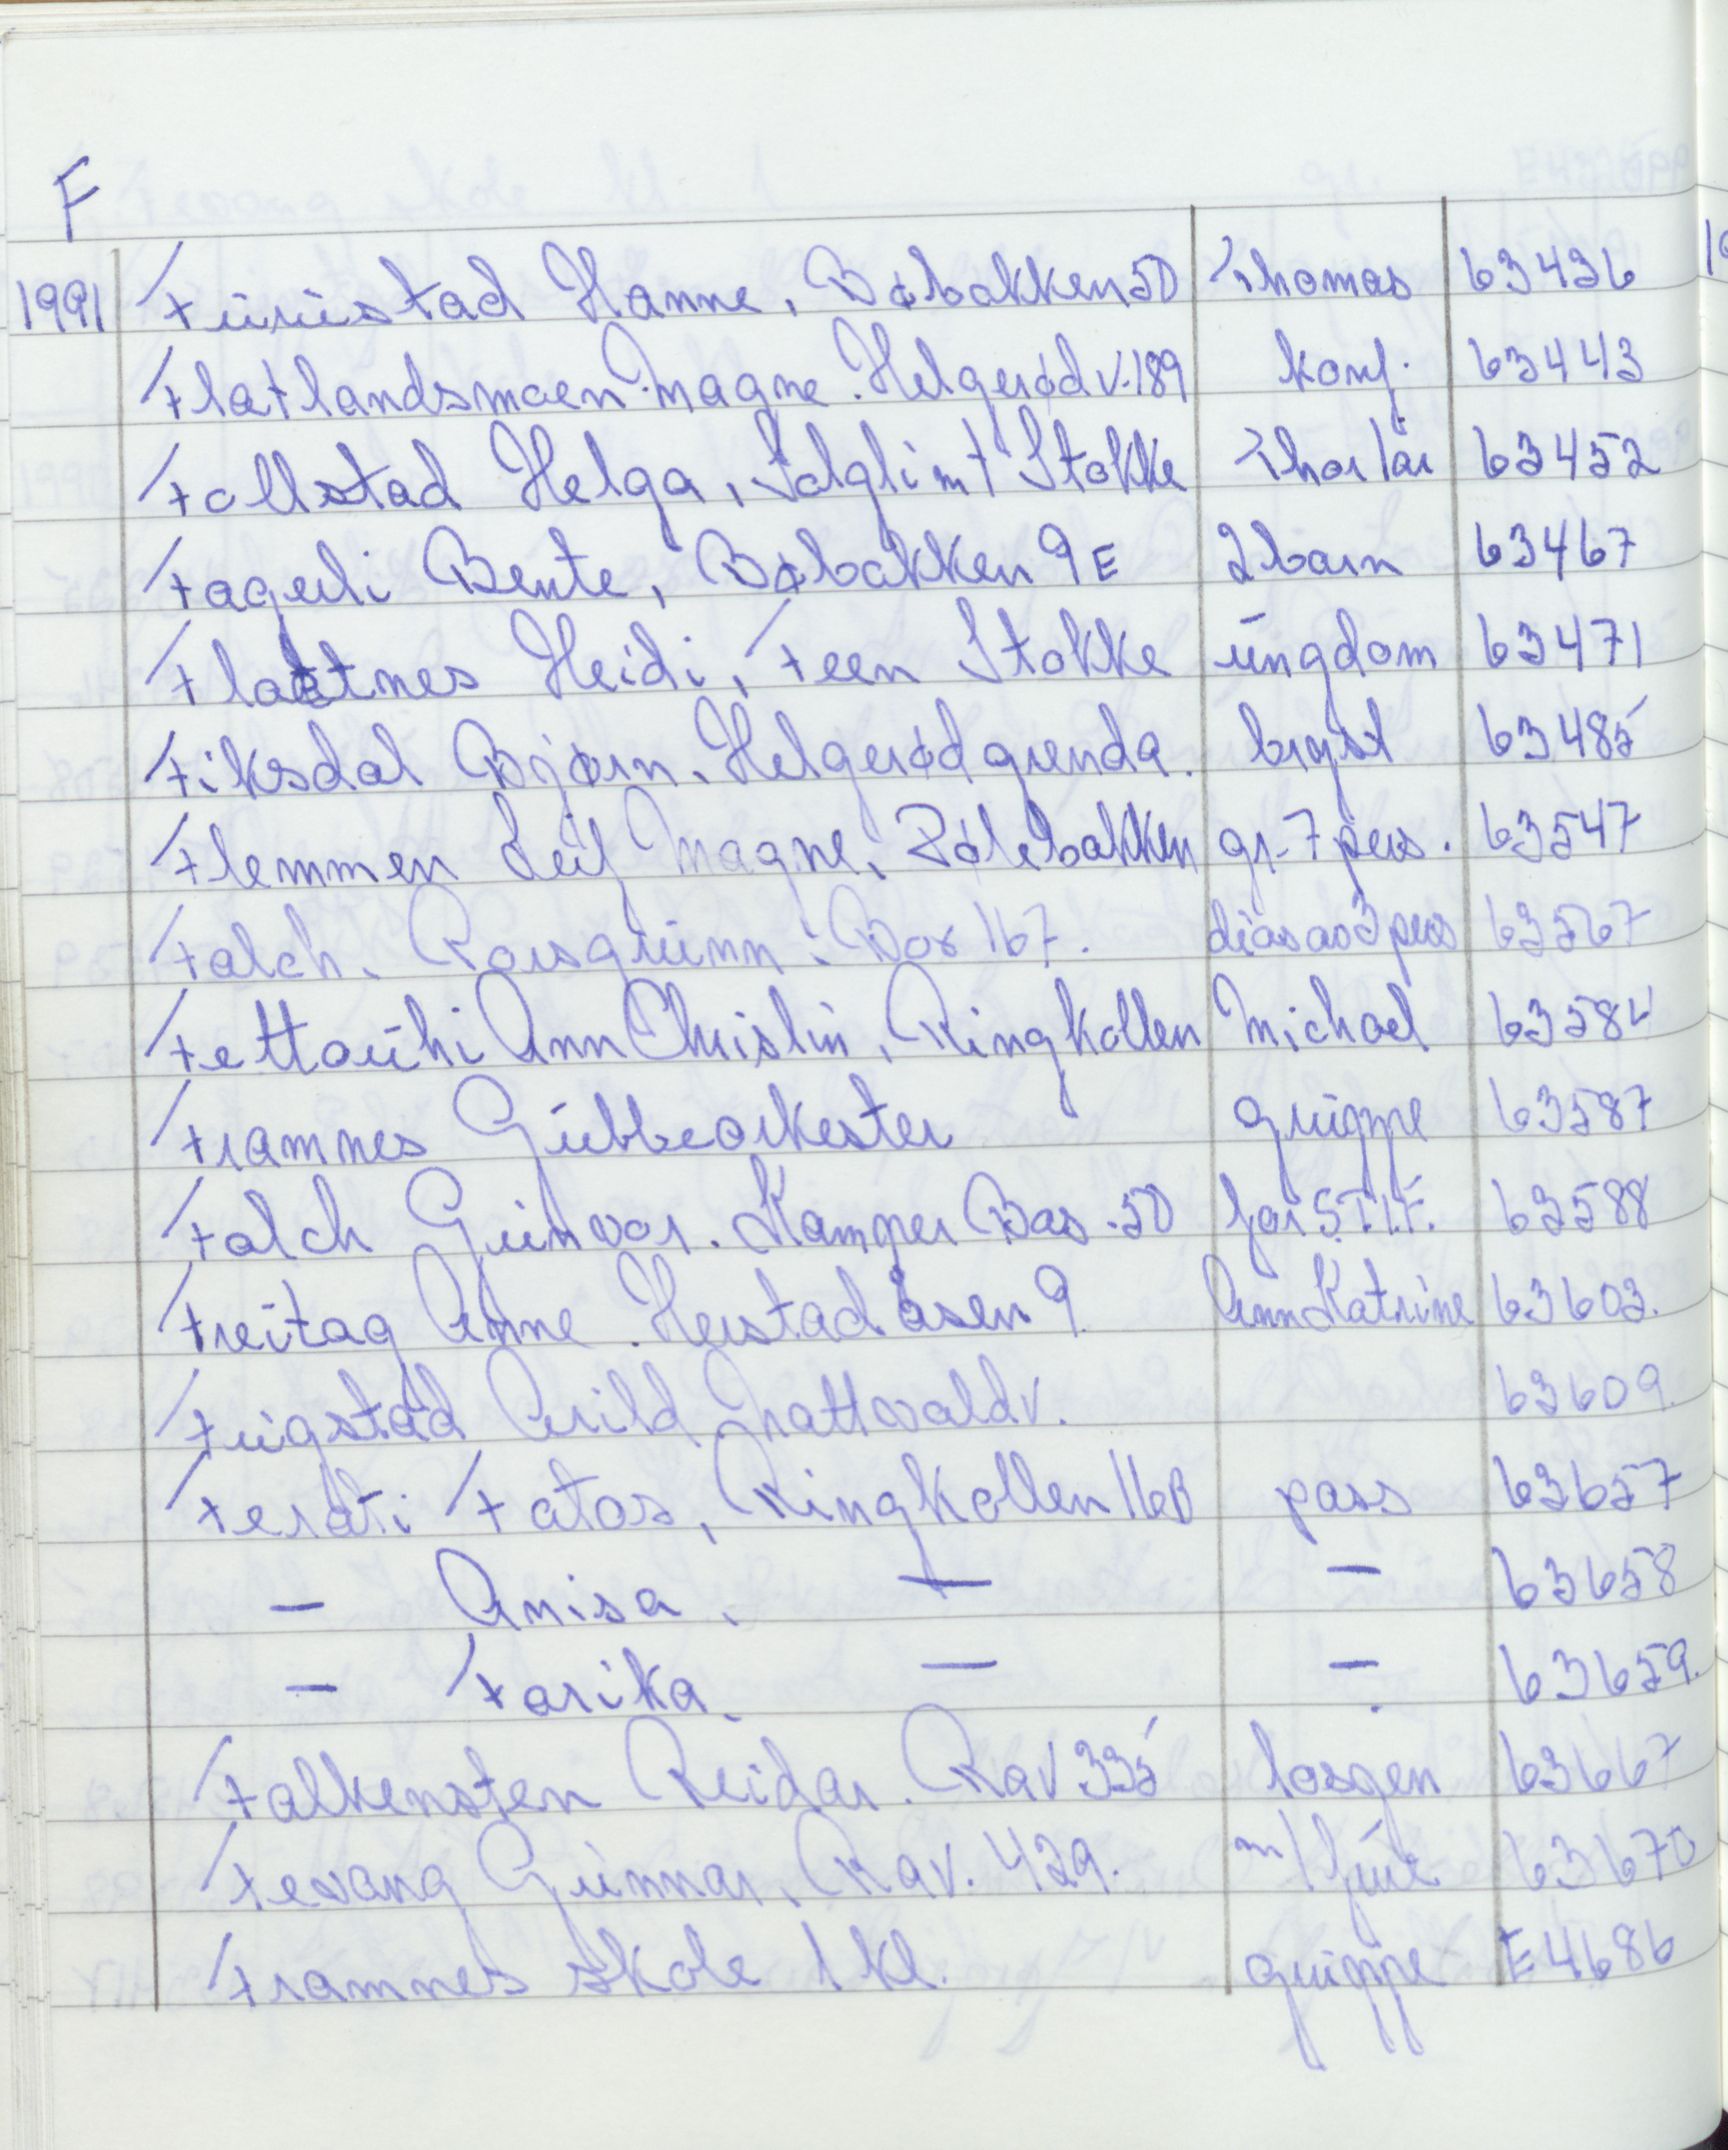 F
1991 Furustad Hanne, Bøbakken 5D Thomas 63436
Flatlandsmoen Magne. Helgerød v. 189 konf. 63443
Follstad Helga, Solglimt Stokke Thor 1år 63452
Fagerli Bente, Bøbakken 9E 2 barn 63467
Flattnes Heidi, Feen Stokke ungdom 63471
Fiksdal Bjørn. Helgerødgrenda. bryst 63485
Flemmen Leif Magne, Solebakken gr. 7 pers. 63547
Falch. Rousgrunn: Box 167. dias av 3 pers 63567
Fettouhi Ann Christin, Ringkollen Michael 6358
Framnes Gubbeorkester gruppe 63587
Falch Gunvor. Kamper Bas. 5D for S.T.I.F. 63588
Freitag Anne. Herstadåsen 9. Ann Katrine 63603.
Fuigstad Arild, Nattvaldv. 63609.
Ferati Fatos, Ringkollen 16B pass 63657
- Anisa. — - 63658
- Farika. — - . 63659.
Falkensten Reidar. Rav 335 losgen 63667
Fevang Gunnar, Rav. 429. m/ frue 63670
Framnes skole 1 kl. gruppe E4686